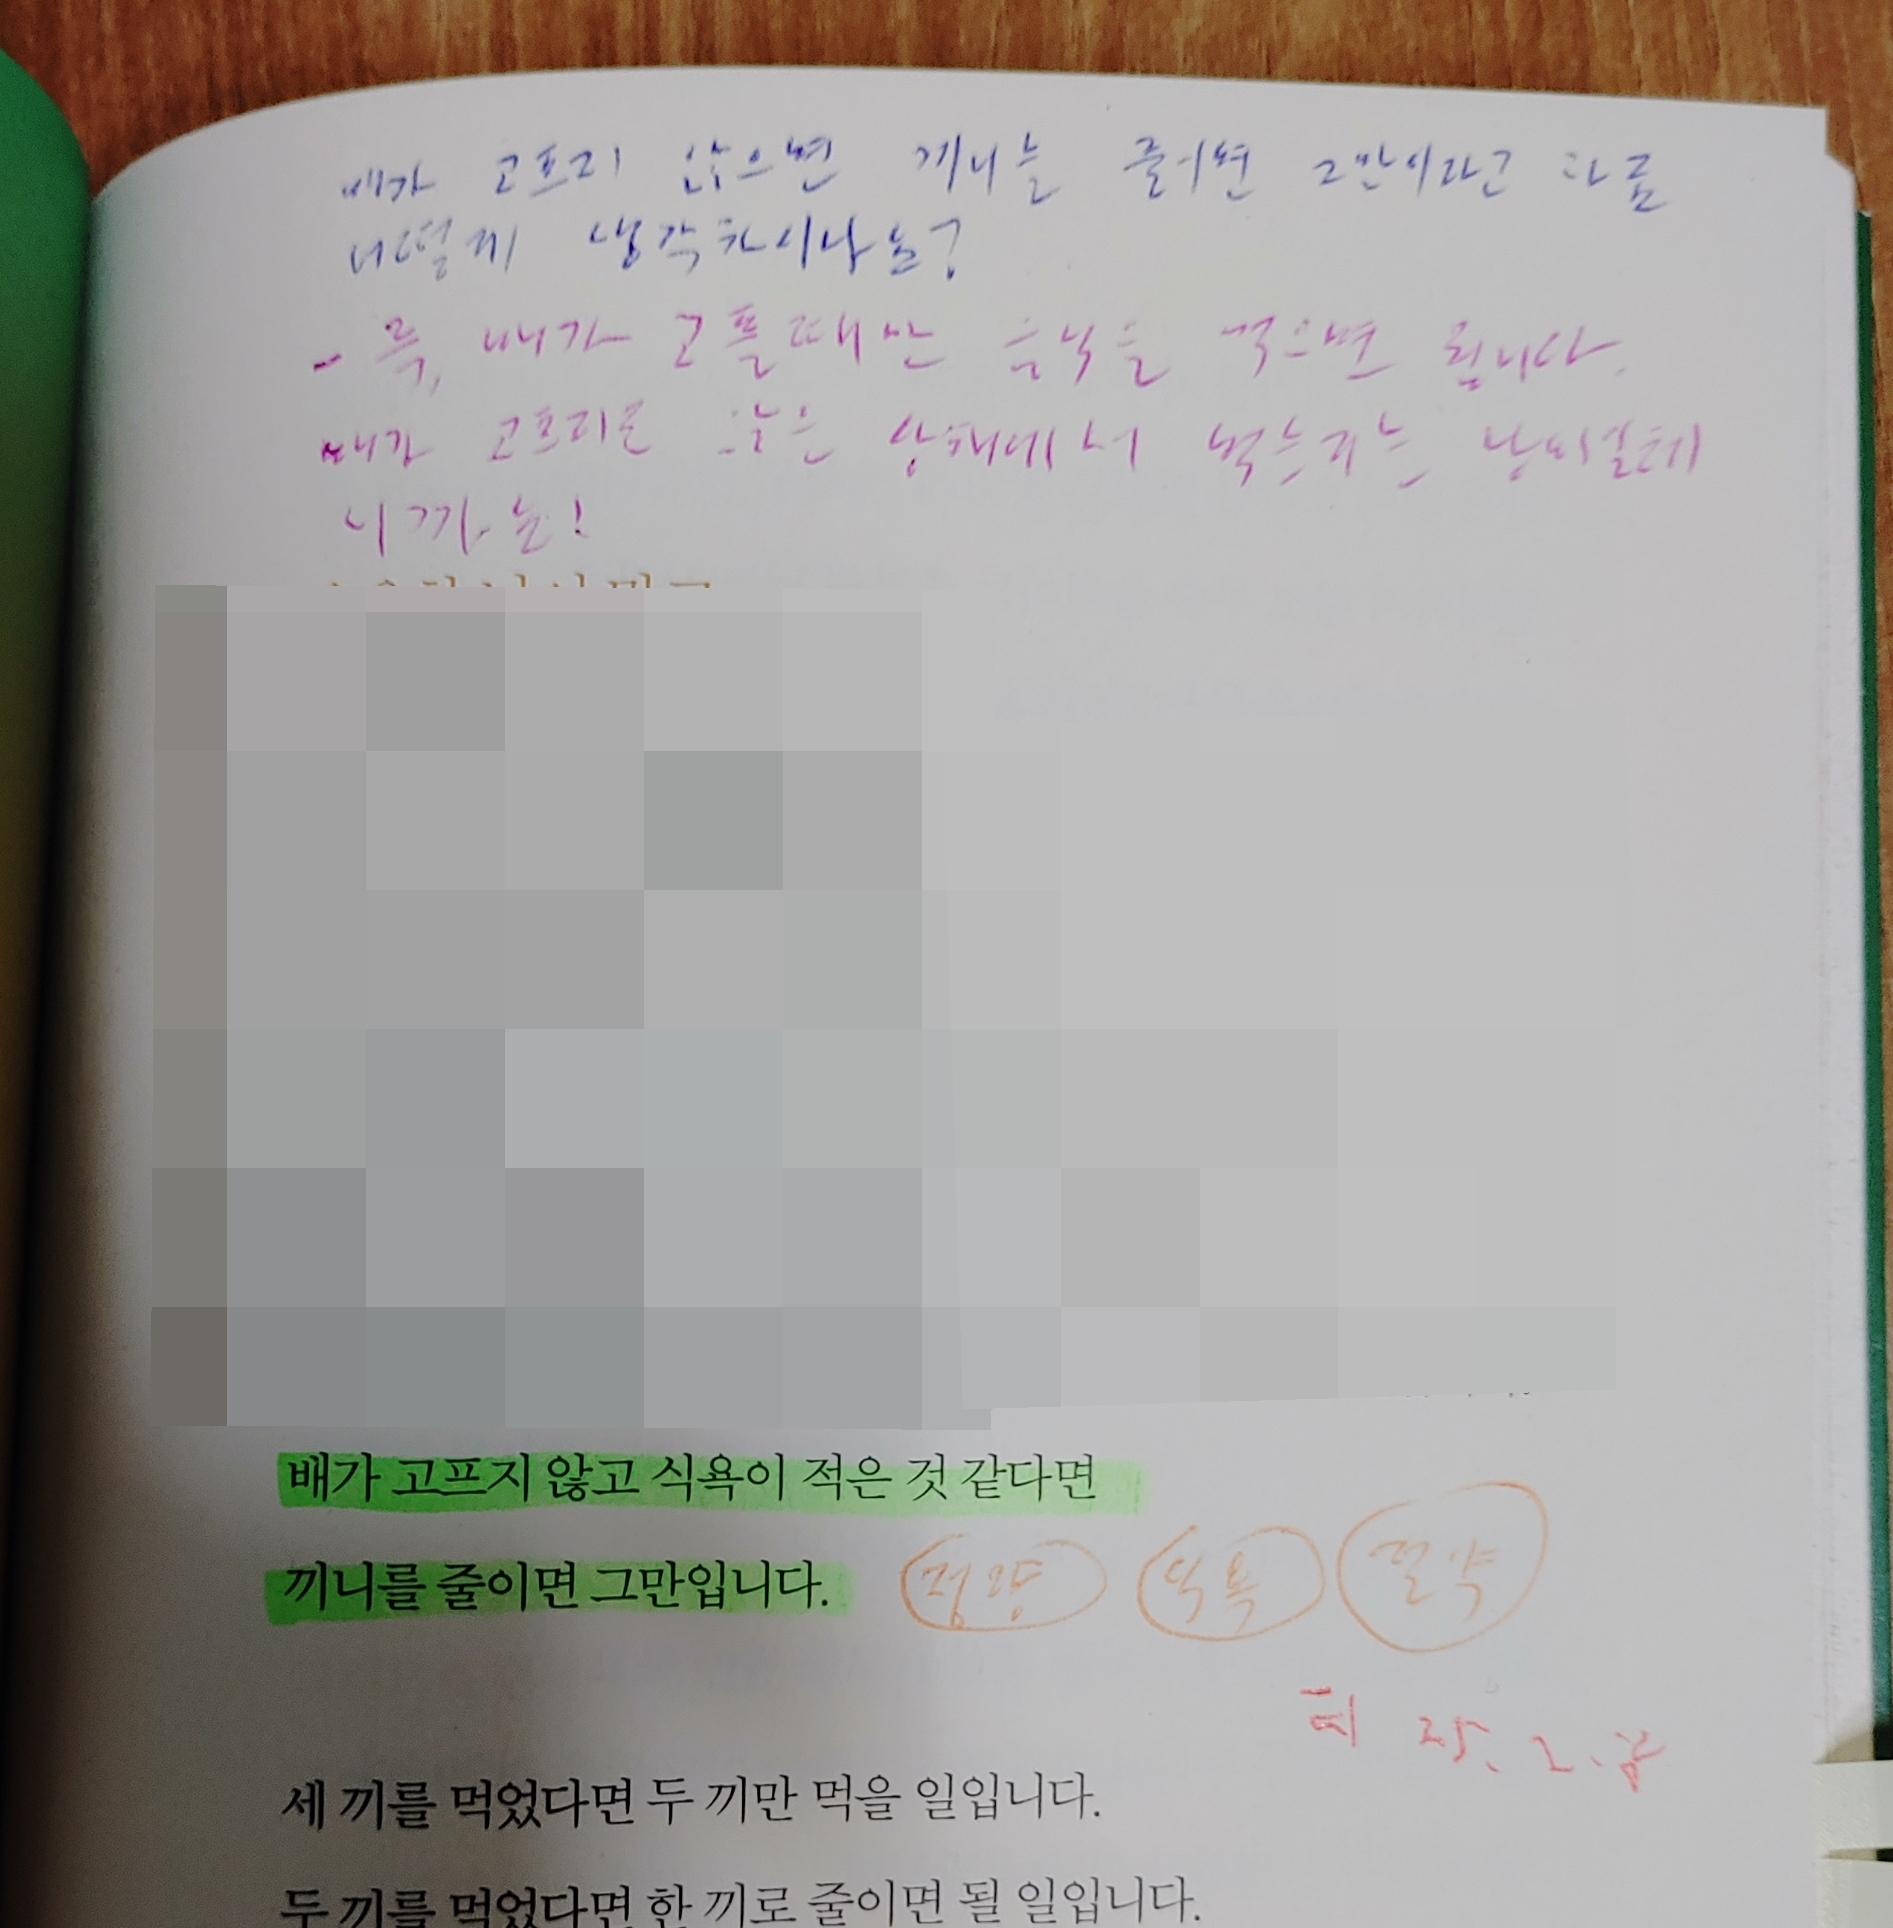 배가 고프지 않으면 끼니를 줄이면 그만이라고
어떻게 생각하시나요?
- 즉, 배가 고플때만 음식을 먹으면 됩니다.
배가 고프지도 않은 상태에서 먹는거는 낭비일테
니까요!
배가 고프지 않고 식욕이 적은 것 같다면
끼니를 줄이면 그만입니다. 정량 식욕 절약
25. 2.
세 끼를 먹었다면 두 끼만 먹을 일입니다.
두 끼를 먹었다면 한 끼로 줄이면 될 일입니다.